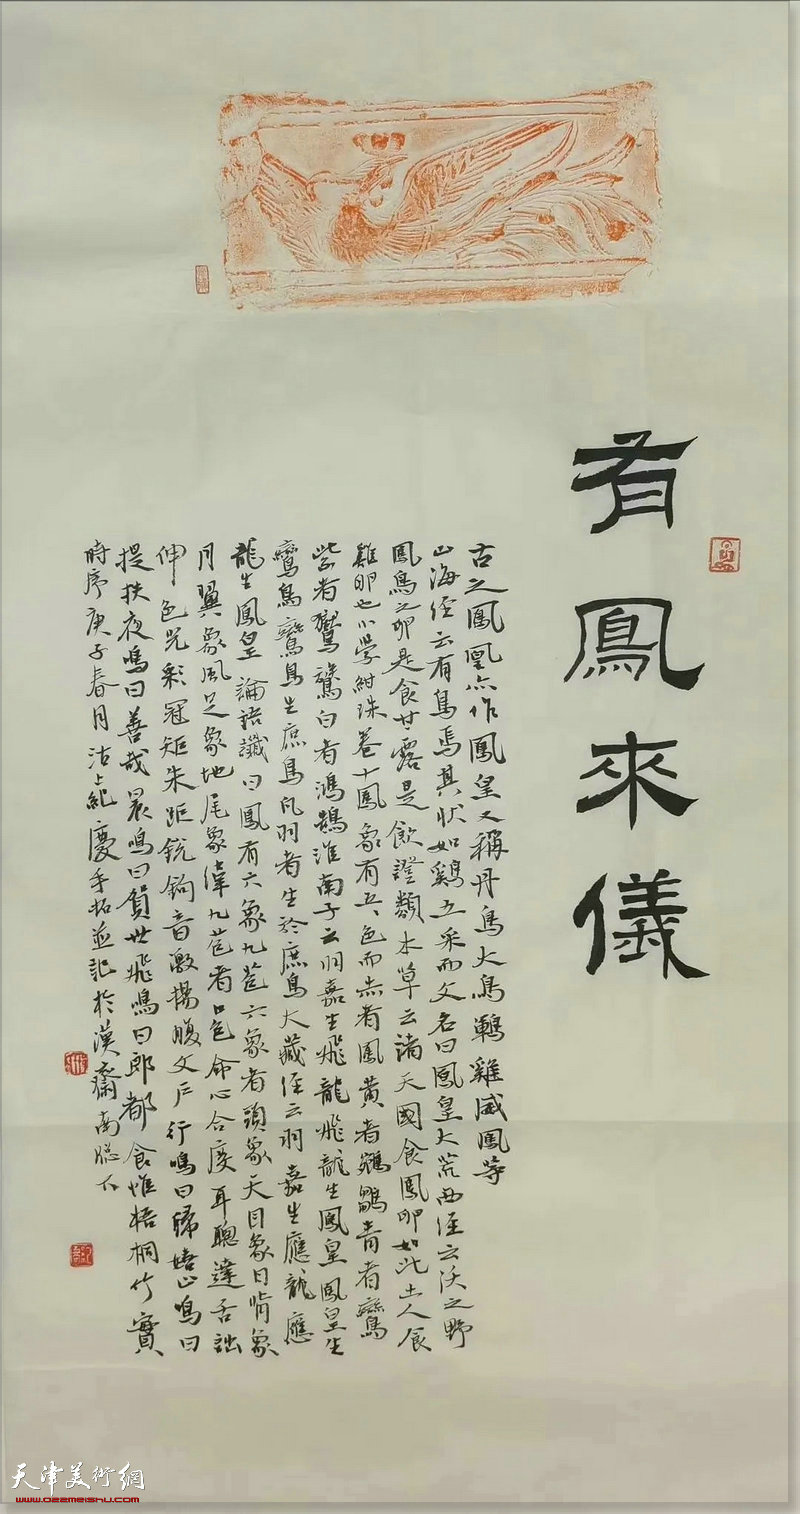 有鳳來儀
古之鳳凰亦作鳳皇又稱丹鳥火鳥鶤雞威鳳等
山海径云有鳥焉其状如鷄五采而文名曰鳳皇大荒西径云沃之野
鳳鳥之卵是食甘露是飲證類本草云諸天國食鳳卵如此土人食
雞卵也小學紺珠卷十鳳象有五五色而赤者鳳黄者鵷鶵青者鸞
紫者鸑鷟白者鴻鵠淮南子云羽嘉生飛龍飛龍生鳳皇鳳皇生
鸞鳥鸞鳥生庶鳥凡羽者生於庶鳥大藏径云羽嘉生應龍應
龍生鳳皇論語讖曰鳳有六象九苞六象者頭象天目象日背象
月翼象風足象地尾象緯九苞者口包命心合度耳聰達舌詘
伸色光彩冠矩朱距銳鉤音激揚腹文户行鳴曰歸嬉止鳴曰
提扶夜鳴曰善哉晨鳴曰賀世飛鳴曰郎都食惟梧桐竹實
時序庚子春月沽上紀慶手拓並記於漢齋南牕下
天津美術網
www.022meishu.com